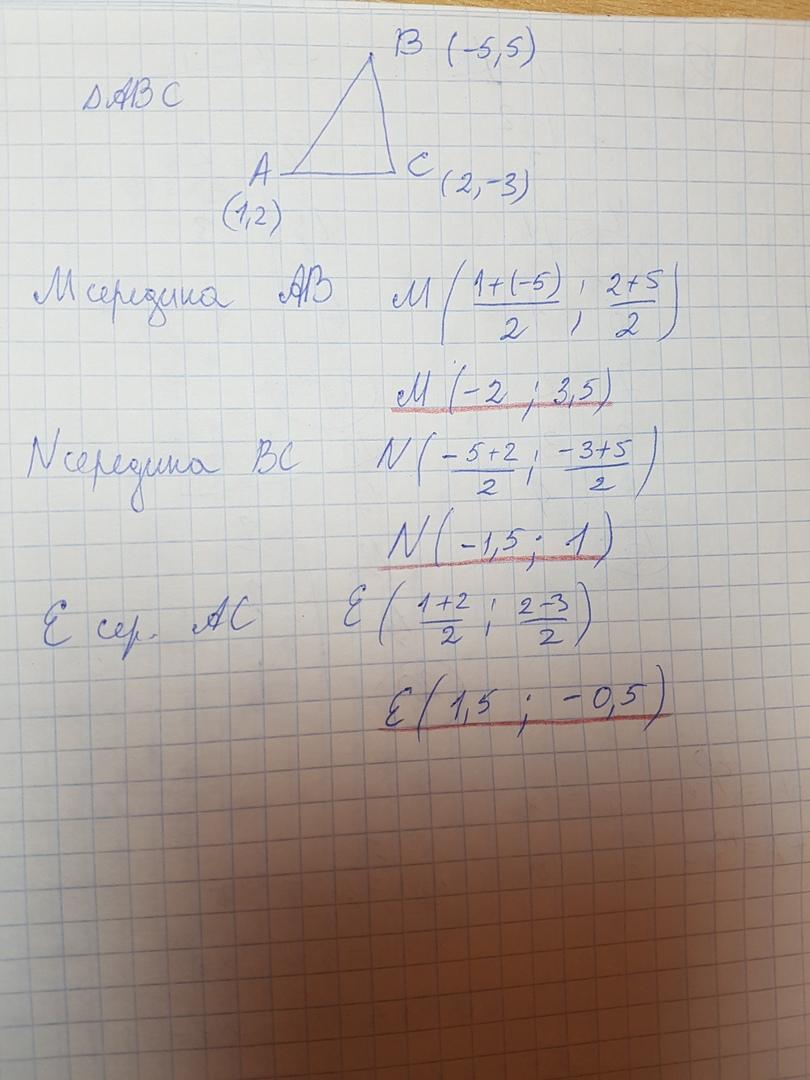 B (-5,5)
△ABC
A
C (2,-3)
(1,2)
M середина AB M(\frac{1+(-5)}{2} ; \frac{2+5}{2})
M (-2 ; 3,5)
N середина BC N(\frac{-5+2}{2} ; \frac{-3+5}{2})
N(-1,5 ; 1)
E сер. AC E(\frac{1+2}{2} ; \frac{2-3}{2})
E(1,5 ; -0,5)